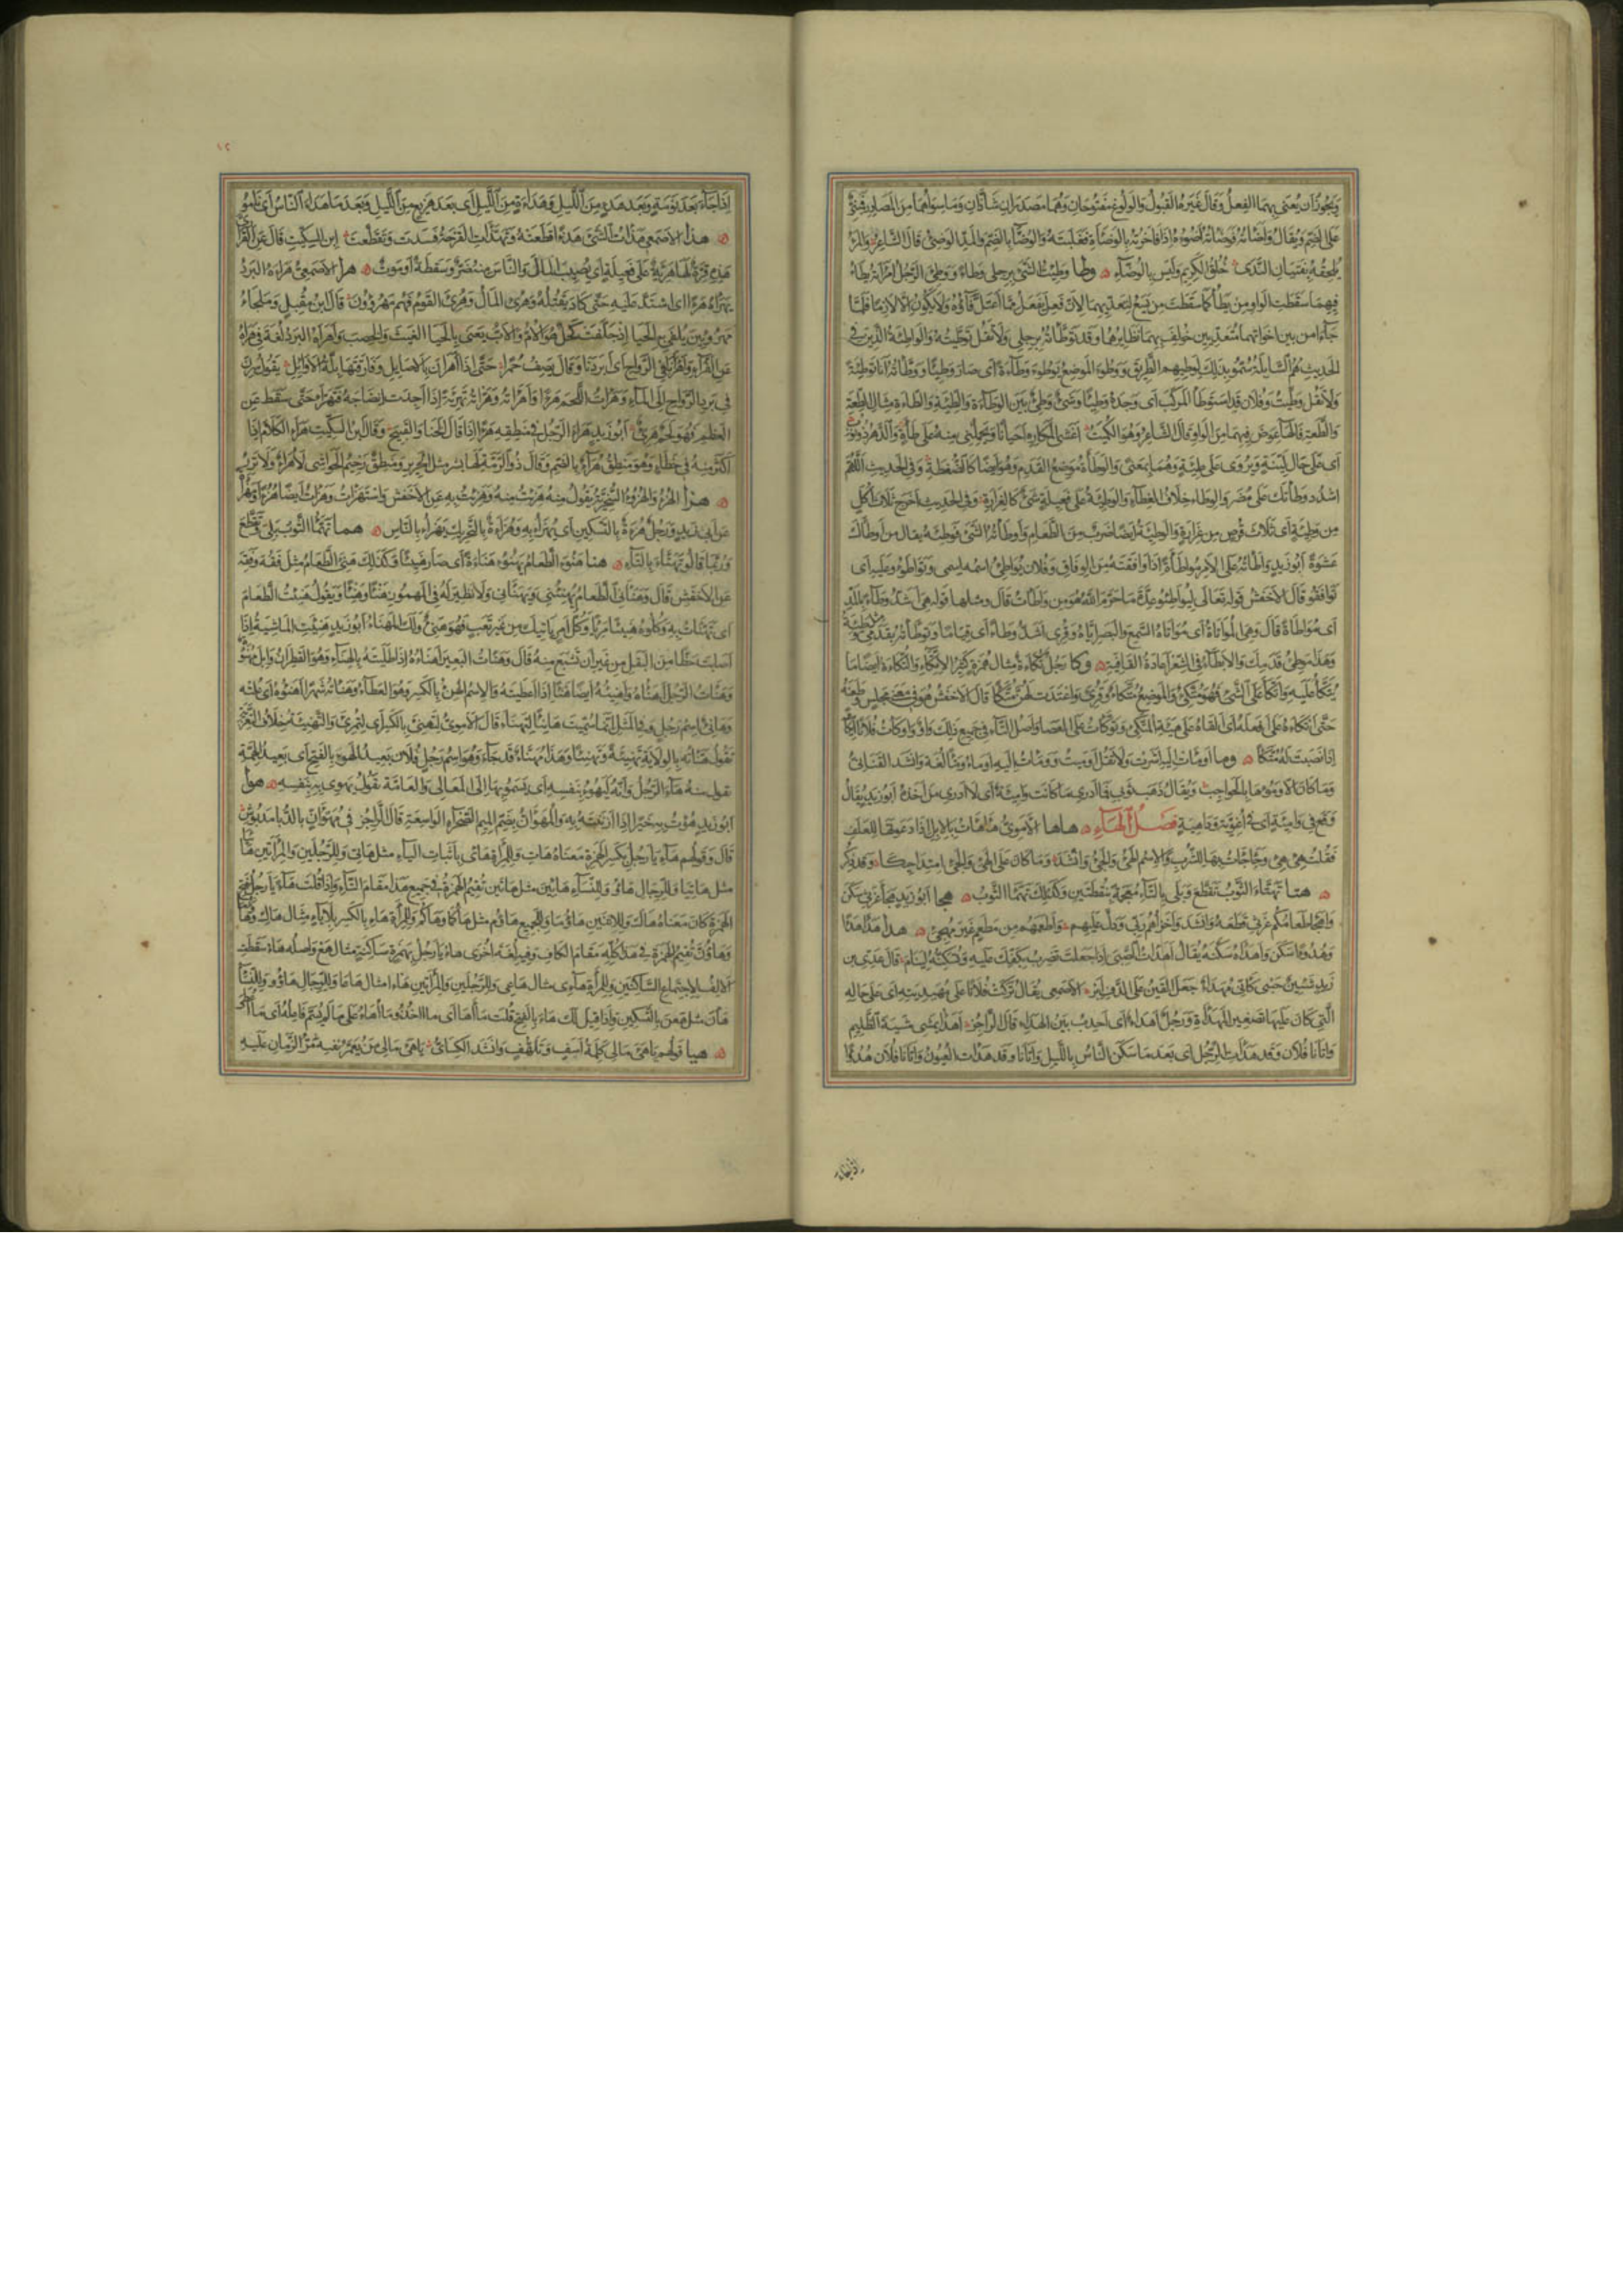 ويجوز ان يعنى بهما الفعل وقال غيره القبول والولوع مفتوحان وهما مصدران شاذان وما سواهما من المصادر فمبني
على الضم ويقال واضأته فوضأته أضوؤه اذا فاخرته بالوضاءة فغلبته والوضاء بالضم والمد الوضئ قال الشاعر والمرء
يلحقه بفتيان الندى خلق الكريم وليس بالوضاء وطأ وطئت الشئ برجلي وطاء ووطئ الرجل امرأته يطأ
فيهما سقطت الواو من يطأ كما سقطت من يسع لتعديهما لان فعل يفعل مما اعتل فاؤه ولا يكون الا لازما فلما
جاءا من بين اخواتهما متعديين خولف بهما نظائرهما وقد توطأته برجلي ولا تقل توطيته والواطئة الذين في
الحديث هم السابلة سموا بذلك لوطئهم الطريق ووطؤ الموضع يوطؤ وطاءة اى صار وطيئا ووطأته انا توطئة
ولا تقل وطيت وفلان قد استوطأ المركب اى وجده وطيئا وشئ وطئ بين الوطاءة والطئة والطاءة مثال الطعة
والطعة فالهاء عوض من الواو فيهما قال الشاعر وهو الكميت اغشى المكاره احيانا ويحملني منه على طأة والدهر ذو نوب
اى على حال لينة ويروى على طئة وهما بمعنى والوطأة موضع القدم وهو ايضا كالضغطة وفى الحديث اللهم
اشدد وطأتك على مضر والوطاء خلاف الغطاء والوطيئة على فعيلة شئ كالغرارة وفى الحديث اخرج ثلاث أكل
من وطيئة اى ثلاث قرص من غرارة والوطيئة ايضا ضرب من الطعام وأوطأته الشئ فوطئه يقال من اوطأك
عشوة ابو زيد واطأته على الامر مواطأة اذا وافقته من الوفاق وفلان يواطئ اسمه اسمى وتواطؤا عليه اى
توافقوا قال الاخفش قوله تعالى ليواطئوا عدة ما حرم الله هو من واطأت قال ومثلها قوله هى اشد وطاء بالمد
اى مواطأة قال وهى المواتاة اى مواتاة السمع والبصر اياه وقرئ اشد وطاء اى قياما وتوطأته بقدمي
وهذا موطئ قدمك والايطاء فى الشعر اعادة القافية وكأ رجل تكأة مثال همزة كثير الاتكاء والتكأة ايضا ما
يتكأ عليه واتكأ على الشئ فهو متكئ والموضع متكأ وقرئ واعتدت لهن متكأ قال الاخفش هو فى معنى مجلس وطعنه
حتى اتكأه على افعله اى القاه على هيئة المتكئ وتوكأت على العصا واصل التاء فى جميع ذلك واو واوكأت فلانا
اذا نصبت له متكأ ومأ اومأت اليه اشرت ولا تقل اوميت وومأت اليه امأ وماء لغة وانشد القنانى
وما كان الا ومؤها بالحواجب ويقال ذهب ثوبى فما ادرى ما كانت وامئته اى لا ادرى من اخذه ابو زيد يقال
وقع فى وامئة اى فى اغوية وداهية فصل الهاء هأهأ الاموى هأهأت بالابل اذا دعوتها للعلف
فقلت هئ هئ وجأجأت بها للشرب والاسم الهئ والجئ وانشد وما كان على الهئ ولا الجئ امتداحيكا وقد ذكر
هتأ تهتأ الثوب تقطع وبلى بالتاء معجمة بنقطتين وكذلك تهمأ الثوب هجأ ابو زيد هجأ غرثى سكن
واهجأ طعامكم غرثى قطعه وانشد واخزاهم ربى ودل عليهم واطعمهم من مطعم غير مهجئ هدأ هدأ هدءا
وهدوءا سكن واهدأه سكنه يقال اهدأت الصبى اذا جعلت تضرب بكفك عليه وتسكته لينام قال عدى بن
زيد شئز جنبى كأنى مهدأ جعل القين على الدف ابر الاصمعى يقال تركت فلانا على مهيدئته اى على حاله
التى كان عليها تصغير المهدأة ورجل اهدأ اى احدب بين الهدأ قال الراجز اهدأ يمشى مشية الظليم
واتانا فلان وقد هدأت الرجل اى بعد ما سكن الناس بالليل واتانا وقد هدأت العيون واتانا فلان هدوءا
اذا جاء بعد نومة وبعد هدء من الليل وهدأة من الليل اى بعد هزيع من الليل وبعد ما هدأ الناس اى ناموا
هذأ الاصمعى هذأت الشئ هذءا قطعته وتهذأت القرحة فسدت وتقطعت ابن السكيت قال عن الفراء
هذه قرة لها هريئة على فعيلة اى يصيب المال والناس منها ضر وسقطة او موت هرأ الاصمعى هرأه البرد
يهرأه هرءا اى اشتد عليه حتى كاد يقتله وهرئ المال وهرئ القوم فهم مهروؤن قال ابن مقبل وملجاء
مهروئين يلفى به الحيا اذ جلفت كحل هو الام والاب يعنى بالحيا الغيث والخصب واهرأه البرد لغة فى هرأه
عن الفراء واهرأنا فى الرواح اى ابردنا وقال يصف حمرا حتى اذا اهرأن بالاصايل وفارقتها بلة الاوابل يقول سرن
فى برد الرواح الى الماء وهرأت اللحم هرءا واهرأته وهرأته تهرئة اذا اجدت انضاجه فتهرأ حتى سقط عن
العظم فهو لحم هرئ ابو زيد هرأ الرجل فى منطقه هرءا اذا قال الخنا والقبيح وقال ابن السكيت هرأ الكلام اذا
اكثر منه فى خطاء وهو منطق هراء بالضم وقال ذو الرمة لها بشر مثل الحرير ومنطق رخيم الحواشى لا هراء ولا نزر
هزأ الهزء والهزؤ السخرية يقول منه هزئت منه وهزئت به عن الاخفش واستهزأت وهزأت ايضا هزءا ومهزأ
عن ابى زيد ورجل هزأة بالتسكين اى يهزأ به وهزأة بالتحريك يهزأ بالناس همأ تهمأ الثوب بلى وتقطع
وربما قالوا تهتأ بالتاء هنأ هنؤ الطعام يهنؤ هناءة اى صار هنيئا وكذلك هنئ الطعام مثل فقه وفقه
عن الاخفش قال وهنأنى الطعام يهنئنى ويهنأنى ولا نظير له فى المهموز هنأ وهنأ ويقول هنئت الطعام
اى تهنأت به وكلوه هنيئا مريئا وكل امر ياتيك من غير تعب فهو هنئ ولك المهنأ ابو زيد هنئت الماشية اذا
اصابت حظا من البقل من غير ان تشبع منه قال وهنأت البعير اهنأه اذا طليته بالهناء وهو القطران وابل مهنوءة
وهنأت الرجل اهنأه واهنئه ايضا هنأ اذا اعطيته والاسم الهنئ بالكسر وهو العطاء وهنأته شهرا اهنؤه اى علته
وهانئ اسم رجل وفى المثل انما سميت هانئا لتهنأ قال الاموى لتهنئ بالكسر اى لتمرئ والتهنئة خلاف التعزية
تقول هنأته بالولاية تهنئة وتهنيئا وهذا مهنأ قد جاء وهو اسم رجل فلان بعيد الهوء بالفتح اى بعيد الهمة
تقول منه هاء الرجل وانه ليهوء بنفسه اى يسمو بها الى المعالى والعامة تقول يهوى بنفسه هوأ
ابو زيد هؤت به خيرا اذا ازننته به والمهوأن بضم الميم الصحراء الواسعة قال الراجز فى مهوأن بالدبا مدبوش
قال وقولهم هاء يا رجل بكسر الهمزة معناه هات وللمرأة هائى باثبات الياء مثل هاتى وللرجلين والمرأتين هائيا
مثل هاتيا وللرجال هاؤا وللنساء هائين مثل هاتين تقيم الهمزة فى جميع هذا مقام التاء واذا قلت هاء يا رجل بفتح
الهمزة كان معناه هاك وللاثنين هاؤما وللجميع هاؤم مثل هاكما وهاكم وللمرأة هاء بالكسر بلا ياء مثال هاك وهاؤما
وهاؤن تقيم الهمزة فى هذا كله مقام الكاف وفيه لغة اخرى هأ يا رجل بهمزة ساكنة مثال هع واصله هاء سقطت
الالف لاجتماع الساكنين وللمرأة هائى مثال هاعى وللرجلين والمرأتين هاءا مثال هاعا وللرجال هاؤوا وللنساء
هأن مثل هعن بالتسكين واذا قيل لك هاء بالفتح قلت ما اهاء اى ما اخذ وما اهاء على ما لم يسم فاعله اى ما اعطى
هيأ قولهم يا هئ مالى كلمة اسف وتلهف وانشد الكسائى يا هئ مالى من يعمر يفنه مر الزمان عليه